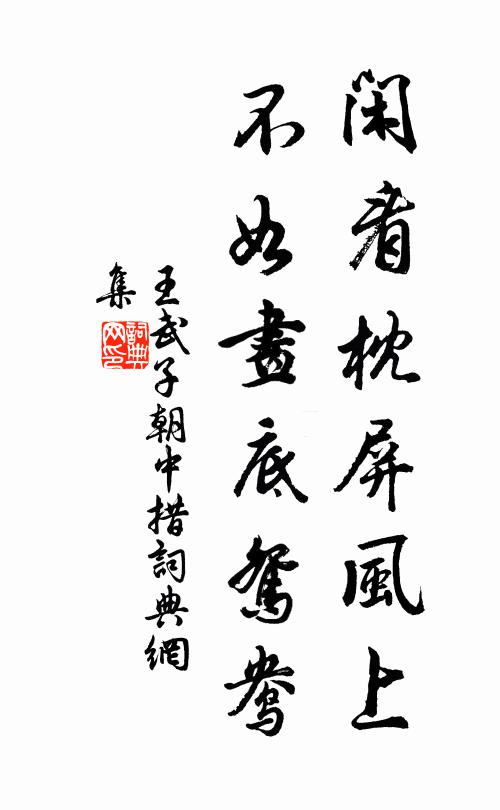 閑看枕屏風上
不如畫底鴛鴦
王武子朝中措詞典網
集
詞典
网印